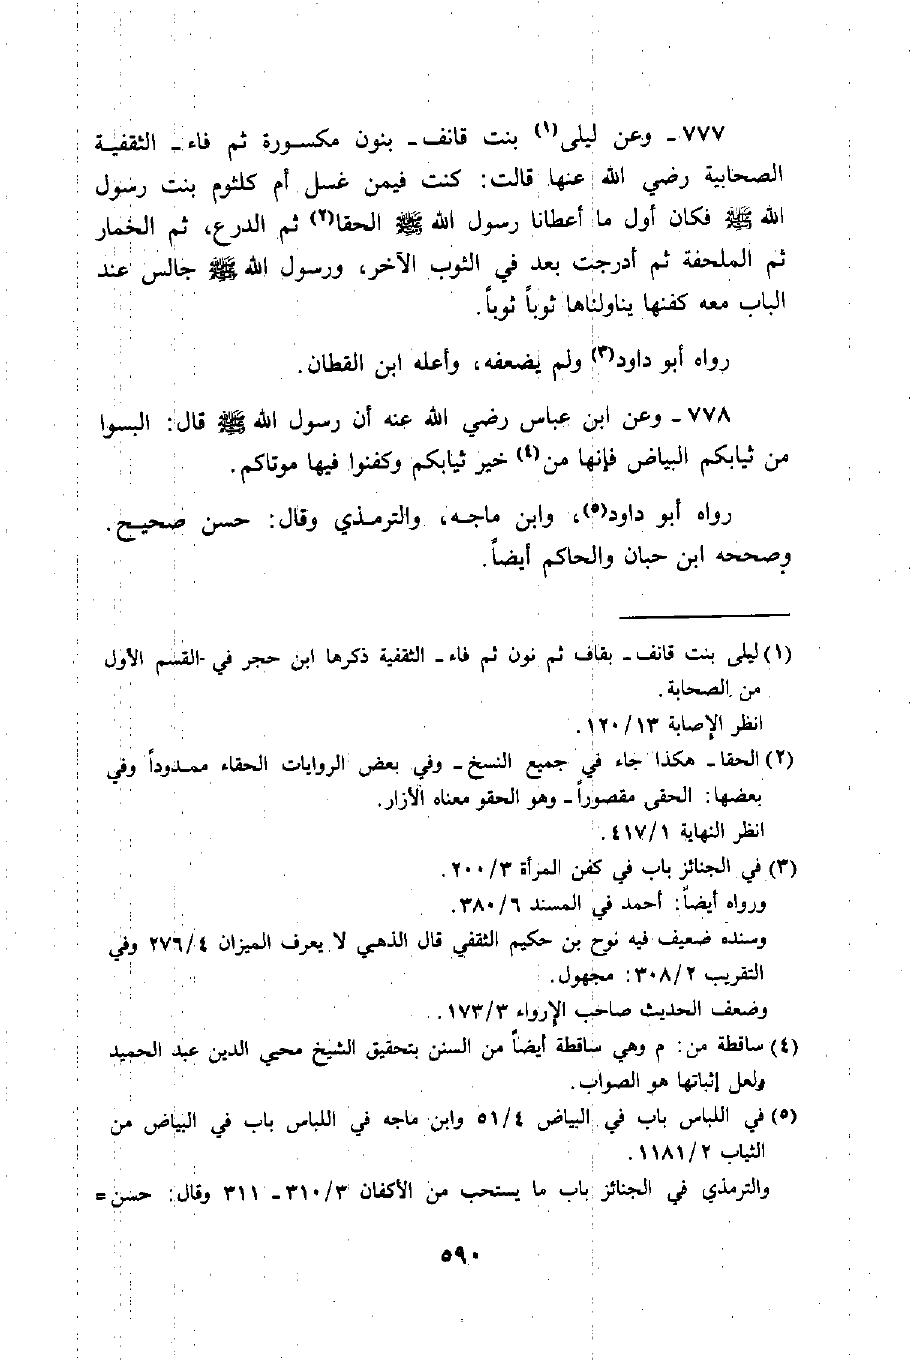 ٧٧٧ـ وعن ليلى(١) بنت قانف ـ بنون مكسورة ثم فاء ـ الثقفية
الصحابية رضي الله عنها قالت: كنت فيمن غسل أم كلثوم بنت رسول
الله ﷺ فكان أول ما أعطانا رسول الله ﷺ الحقا(٢) ثم الدرع، ثم الخمار
ثم الملحفة ثم أدرجت بعد في الثوب الآخر، ورسول الله ﷺ جالس عند
الباب معه كفنها يناولناها ثوباً ثوباً.
رواه أبو داود(٣) ولم يضعفه، وأعله ابن القطان.
٧٧٨ـ وعن ابن عباس رضي الله عنه أن رسول الله ﷺ قال: البسوا
من ثيابكم البياض فإنها من(٤) خير ثيابكم وكفنوا فيها موتاكم.
رواه أبو داود(٥)، وابن ماجه، والترمذي وقال: حسن صحيح.
وصححه ابن حبان والحاكم أيضاً.
(١) ليلى بنت قانف ـ بقاف ثم نون ثم فاء ـ الثقفية ذكرها ابن حجر في القسم الأول
من الصحابة.
انظر الإصابة ١٢٠/١٣.
(٢) الحقا ـ هكذا جاء في جميع النسخ ـ وفي بعض الروايات الحقاء ممدوداً وفي
بعضها: الحقى مقصوراً ـ وهو الحقو معناه الأزار.
انظر النهاية ٤١٧/١.
(٣) في الجنائز باب في كفن المرأة ٢٠٠/٣.
ورواه أيضاً: أحمد في المسند ٣٨٠/٦.
وسنده ضعيف فيه نوح بن حكيم الثقفي قال الذهبي لا يعرف الميزان ٢٧٦/٤ وفي
التقريب ٣٠٨/٢: مجهول.
وضعف الحديث صاحب الإرواء ١٧٣/٣.
(٤) ساقطة من: م وهي ساقطة أيضاً من السنن بتحقيق الشيخ محيي الدين عبد الحميد
ولعل إثباتها هو الصواب.
(٥) في اللباس باب في البياض ٥١/٤ وابن ماجه في اللباس باب في البياض من
الثياب ١١٨١/٢.
والترمذي في الجنائز باب ما يستحب من الأكفان ٣١٠/٣ـ ٣١١ وقال: حسن =
٥٩٠